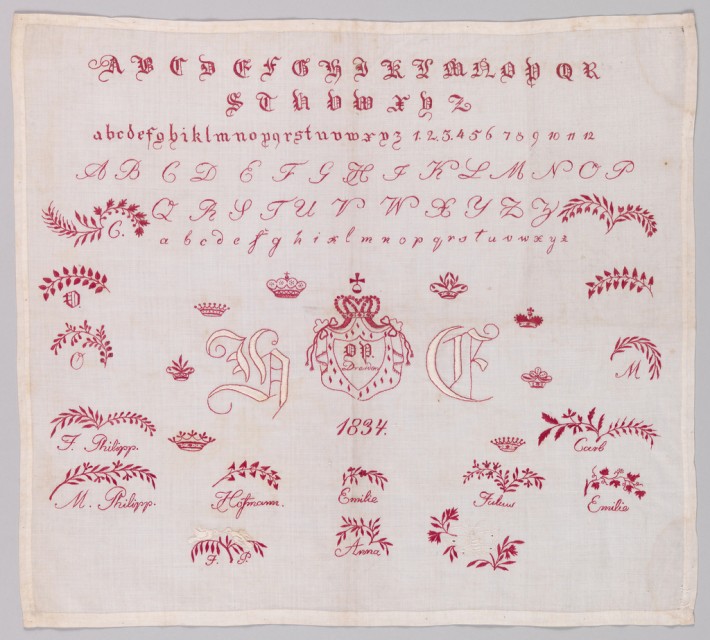 A B C D E F G H I K L M N O P Q R
S T U V W X Y Z
a b c d e f g h i k l m n o p q r s t u v w x y z 1. 2. 3. 4 5 6 7 8 9 10 11 12
A B C D E F G H I K L M N O P
Q R S T U V W X Y Z Z
C.
a b c d e f g h i k l m n o p q r s t u v w x y z
O
M
H
C
1834.
F. Philipp.
Carl
M. Philipp.
Hofmann.
Emilie
Julius
Emilie
F. P.
Anna